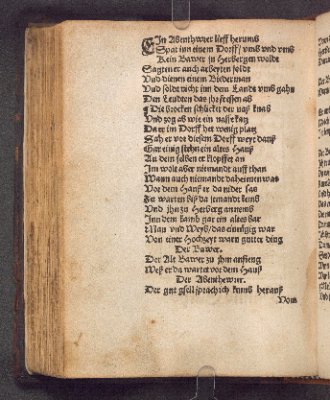 EIn Abenthwrer lieff herumb
Spat inn einem Dorff vmb vnd vmb
Kein Bawer in Herbergen wolde
Sagten er auch arbeyten soldt
Vnd dienen einem Biderman
Vnd soldt nicht inn dem Landt vmb gahn
Den Leudten das jr fressen ab
Die brocken schlicket der naß knab
Vnd zog ab wie ein nasse katz
Da er im Dorff het wenig platz
Sah er vor diesem Dorff weyt dauß
Gar einig stehn ein altes Hauß
An dem selben er klopffet an
Im wolt aber niemandt auff than
Wann auch niemandt daheimen was
Vor dem Hauß er da nider saß
Zu warten biß da jemandt kem
Vnd jhn zu Herberg annem
Inn dem kamb gar ein altes bar
Man vnd Weyb das einnigig war
Von einer Hochzeyt warn gutter ding
Der Bawer.
Der Alt Bawer zu jhm anfieng
Weß er da wartet vor dem Hauß
Der Abenthewrer.
Der gut gsell sprach ich kumb herauß
Vom